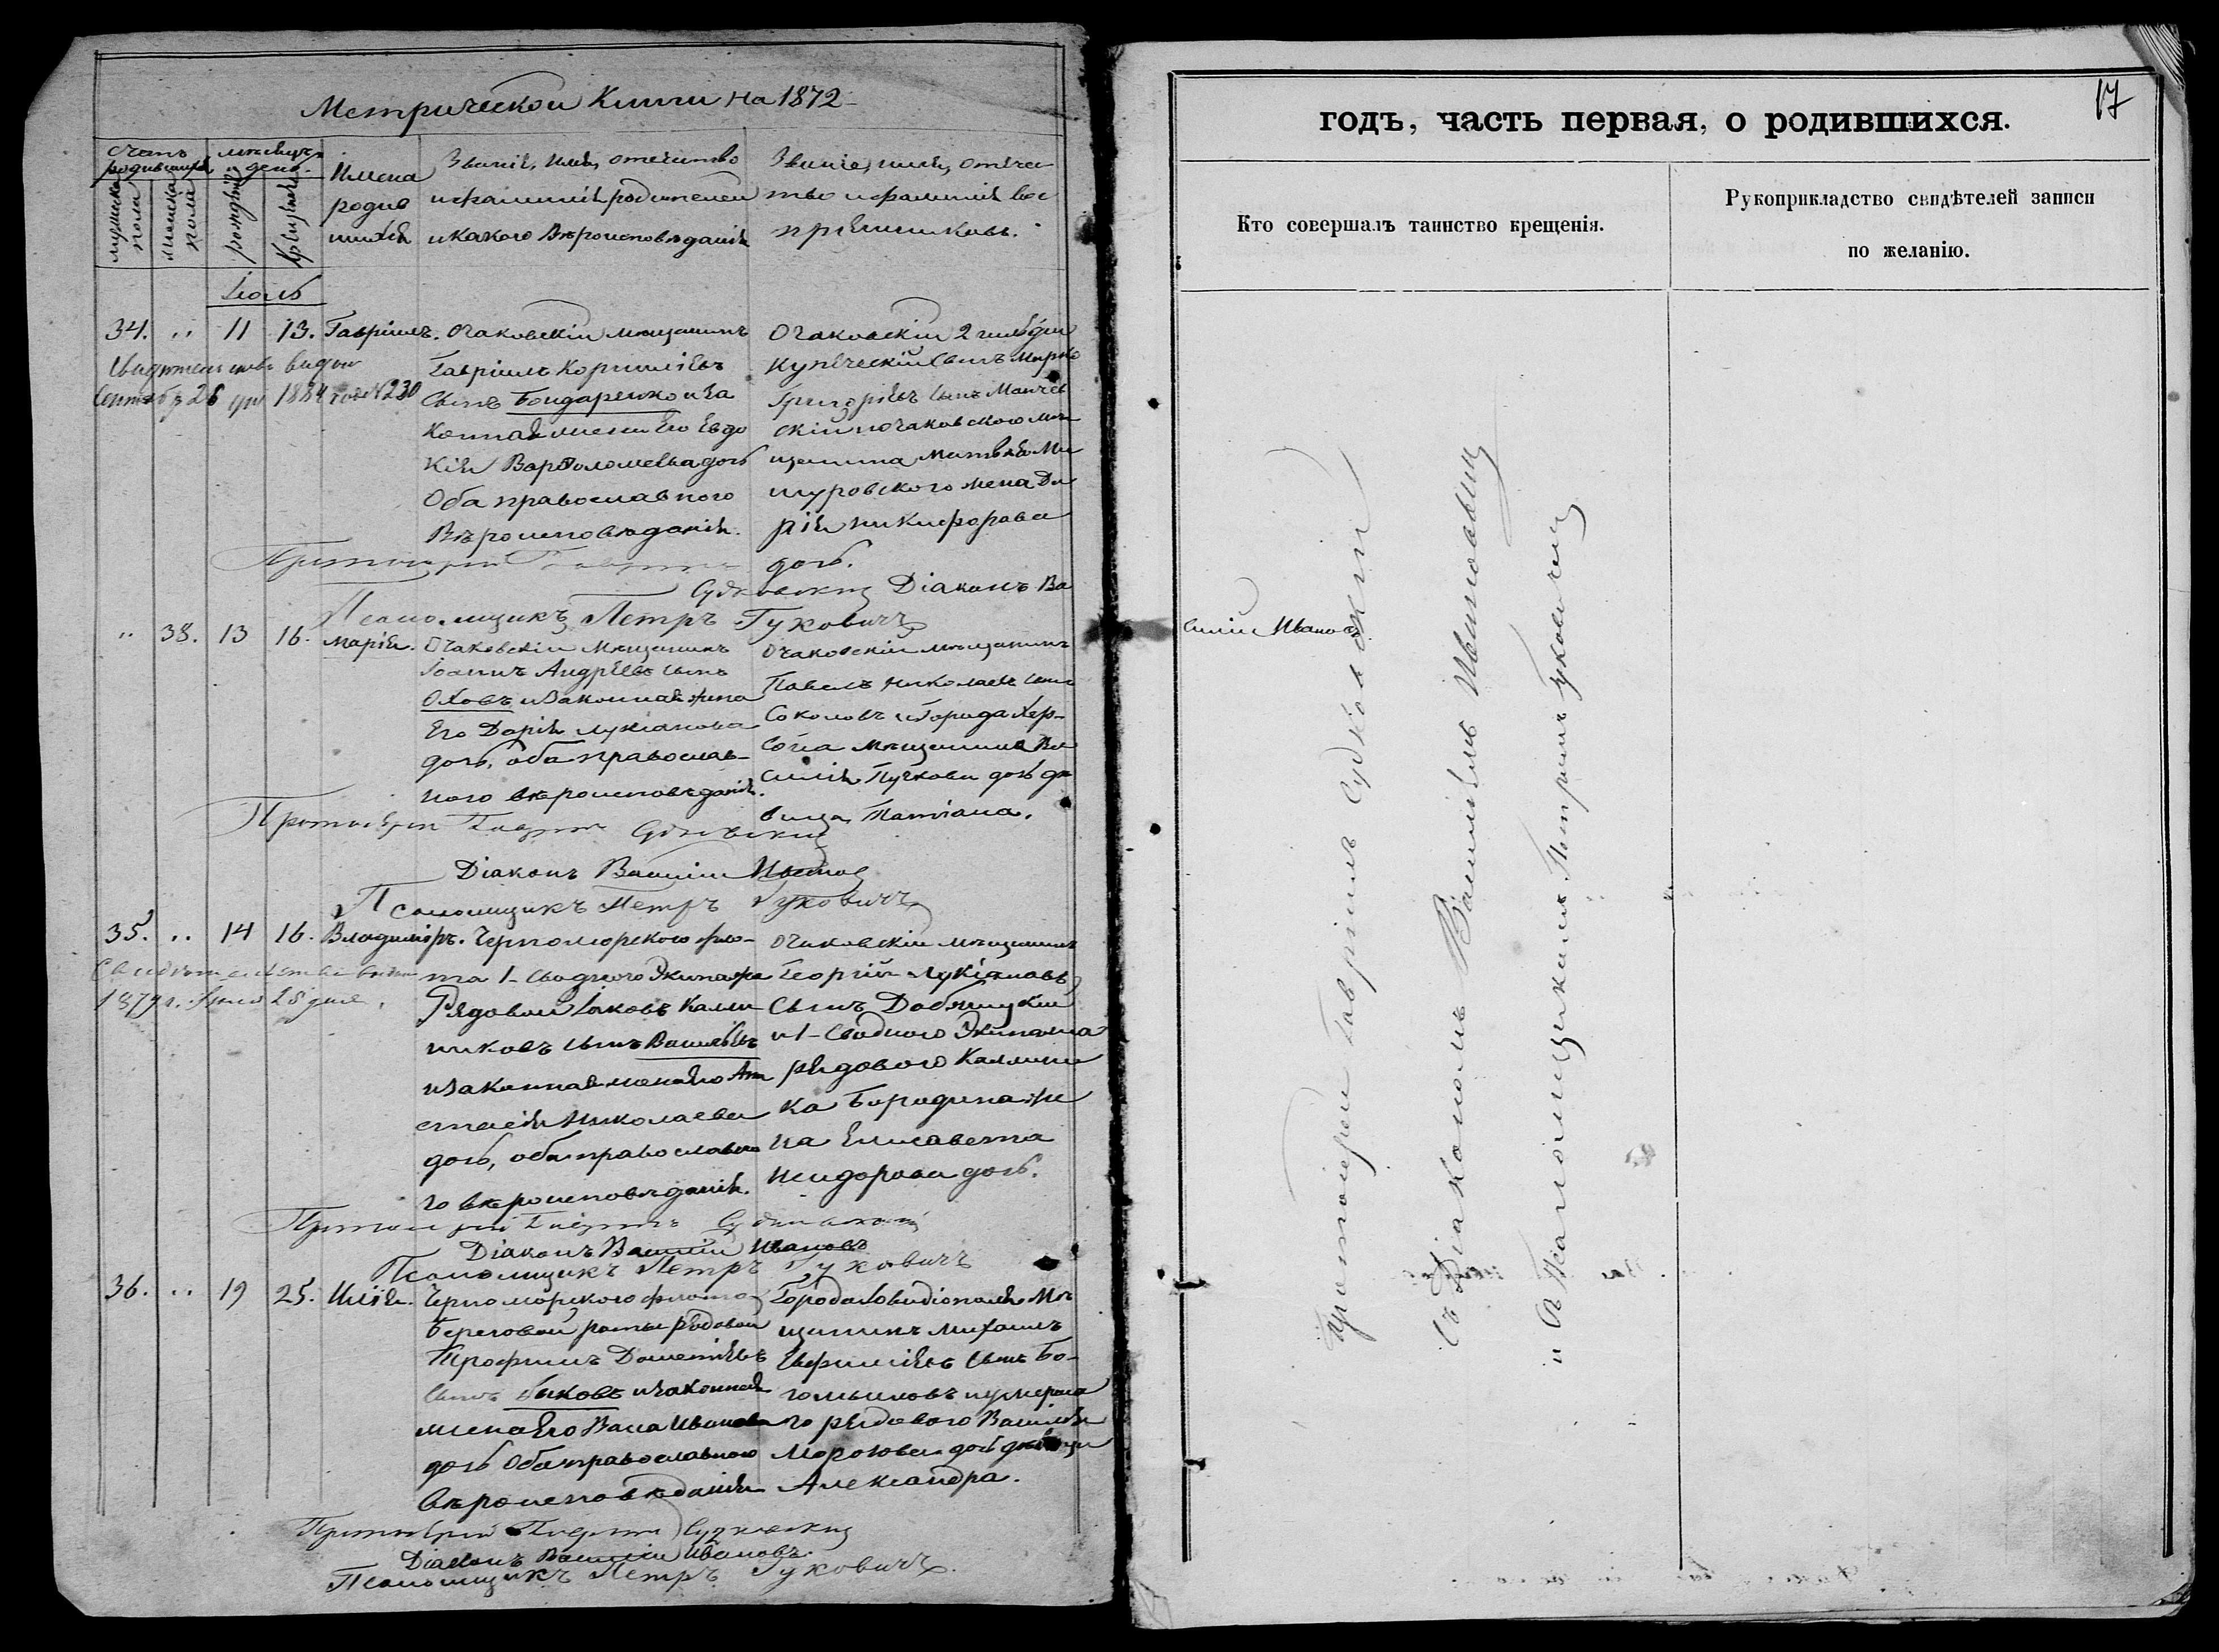 Метрической Книги на 1872
годъ, часть первая, о родившихся.
17
Счетъ родившихся
мужеска пола
женска пола
мѣсяцъ и день.
рожденія
крещенія
Имена
родив
шихся
Званіе, имя, отечество
и фамилія родителей
и какого Вѣроисповѣданія
Званіе, имя, отчес
тво и фамилія вос
пріемниковъ.
Кто совершалъ таинство крещенія.
Рукоприкладство свидѣтелей записи
по желанію.
Іюль
34. " 11 13. Гавріилъ.
Свидетельство выдано
Сентября 26 дня 1884 года №230
Очаковскій мѣщанинъ
Гавріилъ Корниліевъ
Сынъ Бондаренко и за
конная жена Его Евдо
кія Варѳоломеева дочь
Оба православного
Вѣроисповѣданія.
Очаковскій 2 гильдіи
Купеческій Сынъ Марко
Григорьевъ Сынъ
скій и очаковского мѣ
щанина Матвѣя Ми
шуровского жена Да
рія Никифорова
дочь.
Протоіерей Гавріилъ Судковскій
Діаконъ Ва
силій Ивановъ
Псаломщикъ Петръ Гуковичъ
" 38. 13 16. Марія.
Очаковскій Мѣщанинъ
Іоаннъ Андреевъ сынъ
Оховъ и Законная жена
Его Дарія Лукіанова
дочь, оба православ-
ного вѣроисповѣданія.
Очаковскій мѣщанинъ
Павелъ Николаевъ сынъ
Соколовъ и Города Хер-
сона мѣщанина Ва
силія Пучкова дочь дѣ
вица Татіана.
Протоіерей Гавріилъ Судковскій
Діаконъ Василій Ивановъ
Псаломщикъ Петръ Гуковичъ
35. " 14 16. Владиміръ.
Свидѣтельство выдано
1879 г. 28 дня
Черноморского фло-
та 1-Сводного Экипажа
Рядовой Іаковъ Калин
никовъ сынъ Васильевъ
и Законная жена Его Ана
стасія Николаева
дочь, оба православно
го вѣроисповѣданія.
Очаковскій мѣщанинъ
Георгій Лукіановъ
Сынъ
и 1-Сводного Экипажа
рядового Калинни
ка Бородина же
на Елисавета
Исидорова дочь.
Протоіерей Гавріилъ Судковскій
Діаконъ Василій Ивановъ
Псаломщикъ Петръ Гуковичъ
36. " 19 25. Илія.
Черноморского флота
Береговой роты рядовой
Трофимъ Дометіевъ
Сынъ Быковъ и законная
жена Его Васса Иванова
дочь Оба православного
Вѣроисповѣданія
Города Овидіополя Мѣ
щанинъ Михаилъ
Евфиміевъ сынъ Бо-
гомыловъ и умерша
го рядового Василія
Морозова дочь дѣвица
Александра.
Протоіерей Гавріилъ Судковскій
Діаконъ Василій Ивановъ.
Псаломщикъ Петръ Гуковичъ.
Протоіерей Гавріилъ Судковскій
Съ Діакономъ Василіемъ Ивановымъ
и Псаломщикомъ Петромъ Гуковичемъ